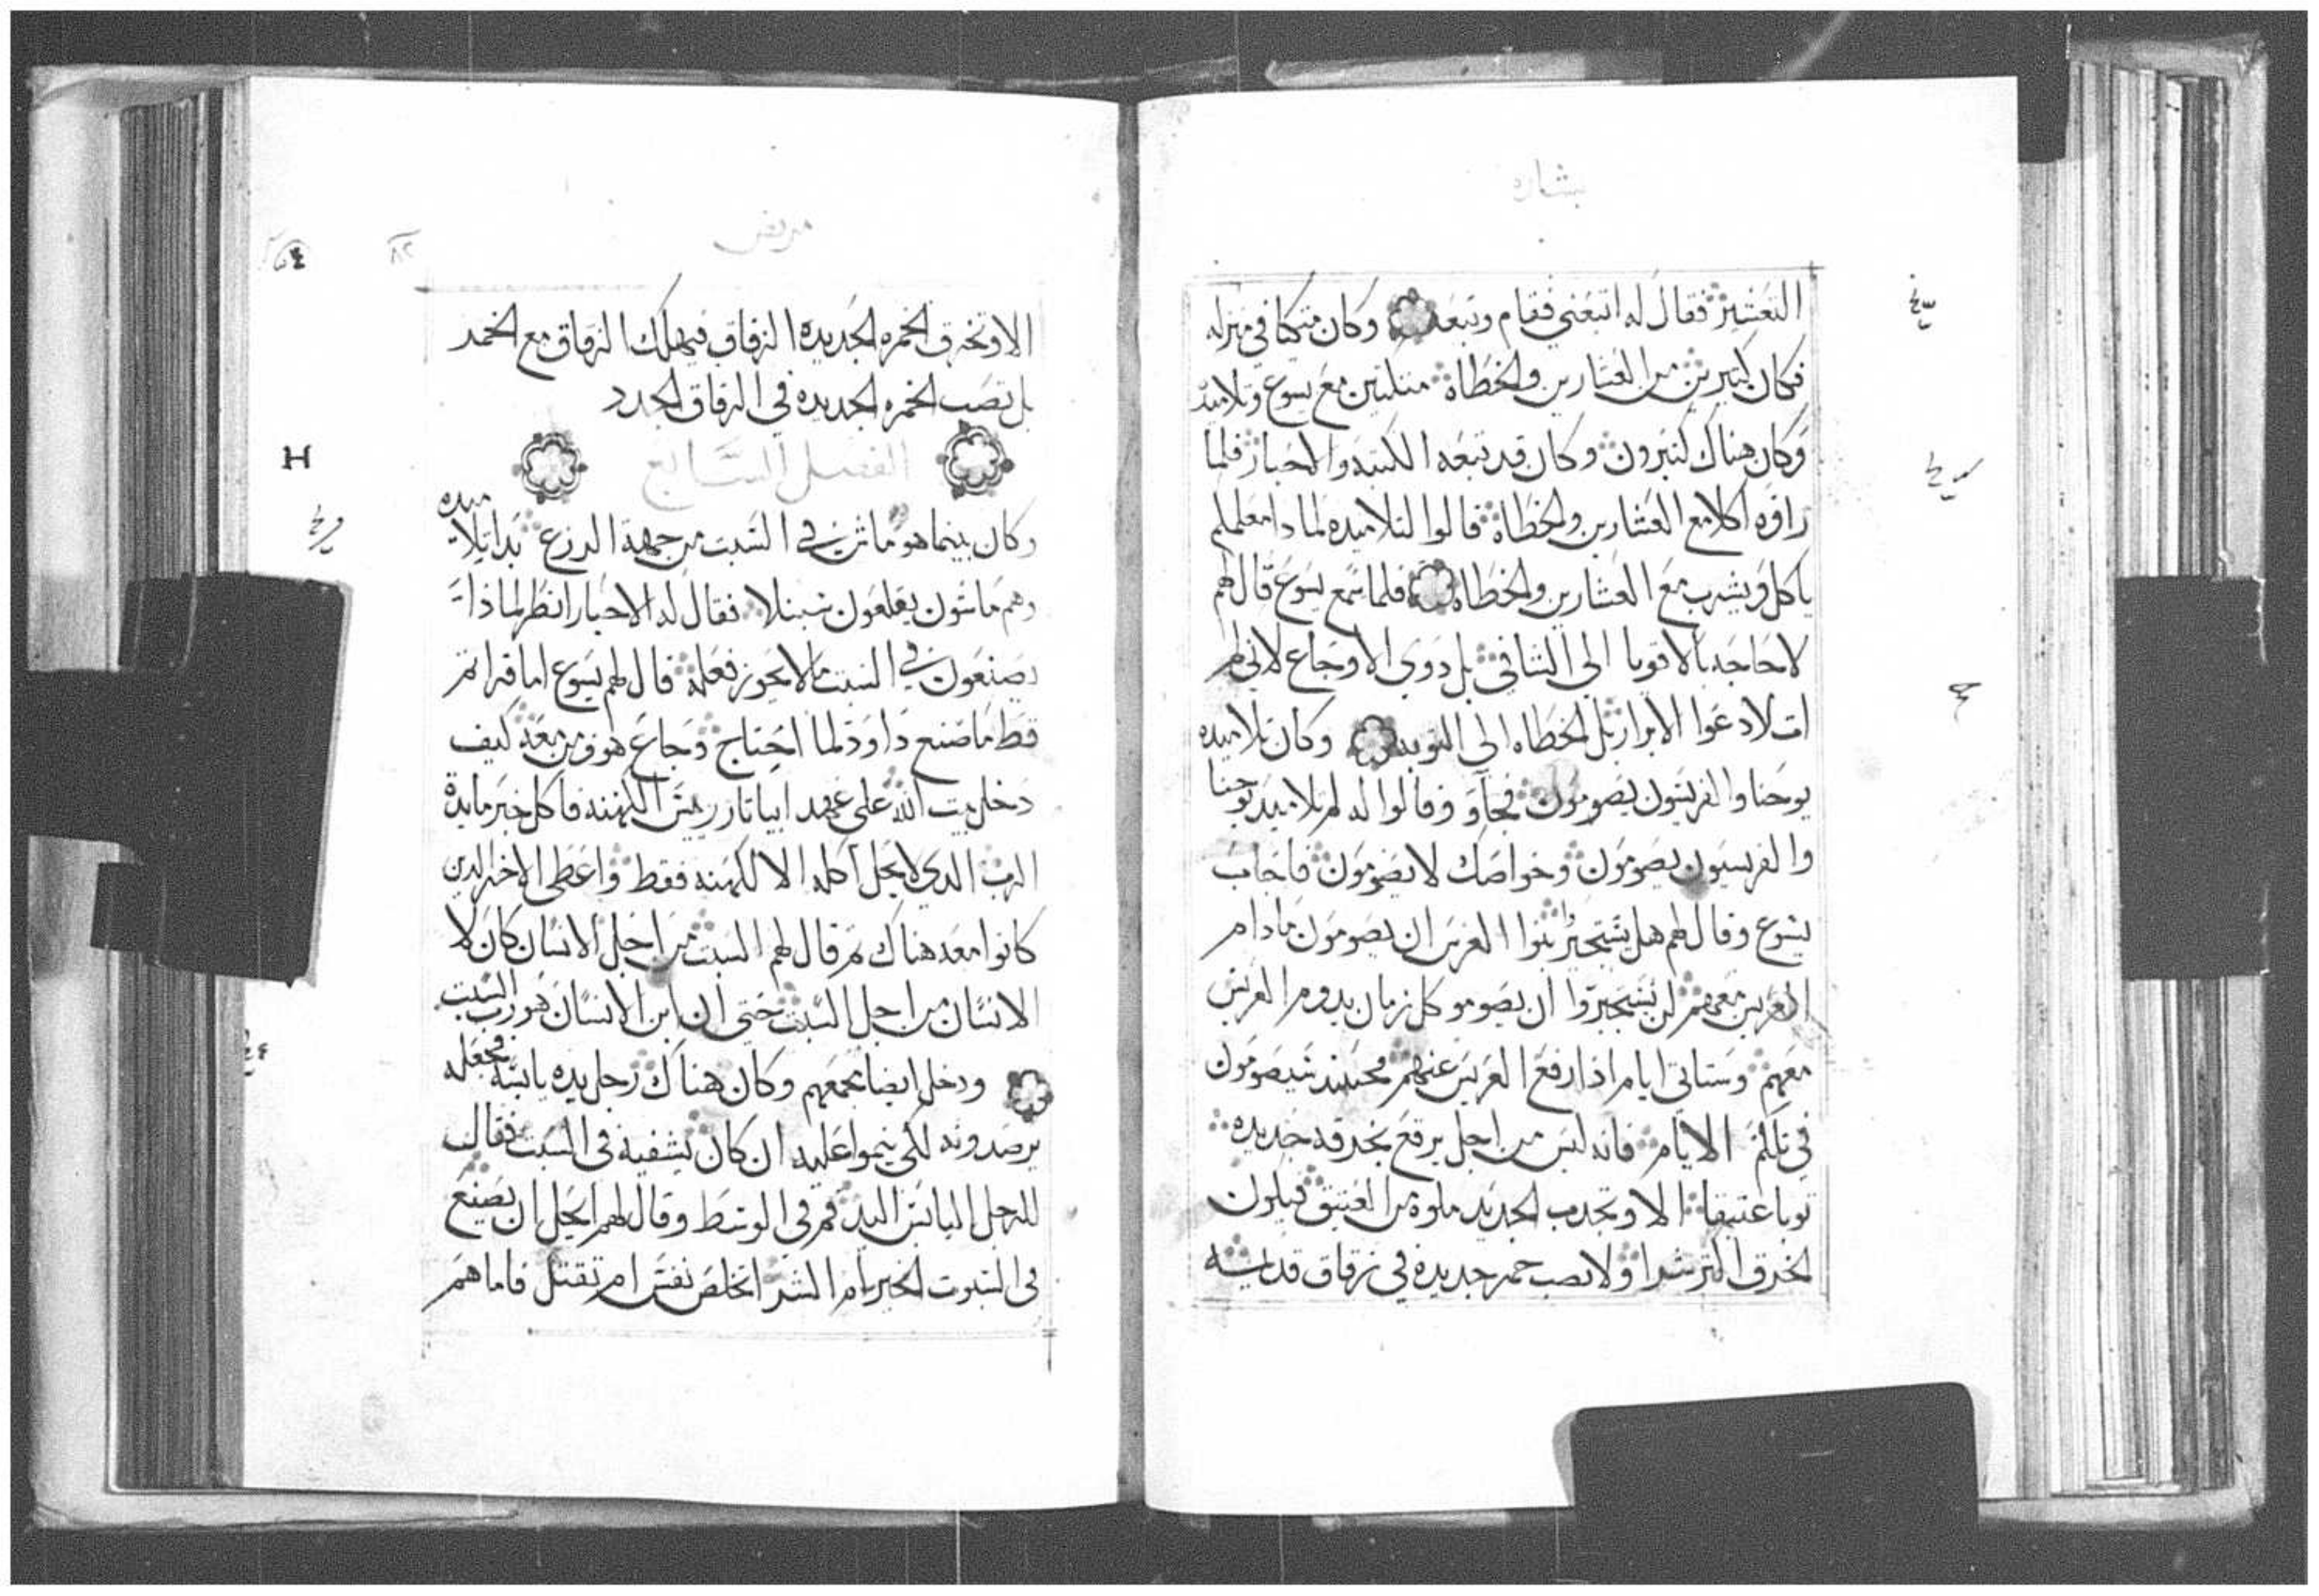 بشاره
التعشير فقال له اتبعني فقام وتبعه وكان متكا في منزله
فكان كثيرين من العشارين والخطاة متكئين مع يسوع وتلاميذ
وكان هناك كثيرون وكان قد تبعه الكتبه والاحبار فلما
راوه اكلا مع العشارين والخطاة قالوا لتلاميذه لماذا معلمكم
ياكل ويشرب مع العشارين والخطاه فلما سمع يسوع قال لهم
لا حاجه بالاقويا الى الشافي بل ذوي الاوجاع لاني لم
ات لادعوا الابرار بل الخطاه الى التوبه وكان تلاميذه
يوحنا والفريسيون يصومون فجآو وقالوا له لم تلاميذ يوحنا
والفريسيون يصومون وخواصك لا يصومون فاجاب
يسوع وقال لهم هل يستجيز بنوا العرس ان يصومون مادام
العريس معهم لن يستجيزوا ان يصومو كل زمان يدوم العريس
معهم وستاتي ايام اذا رفع العريس عنهم فحينيذ يصومون
في تلكم الايام فانه ليس من احد يرقع بخرقه جديده
ثوبا عتيقا الا وتجذب الجديد ملوه من العتيق فيكون
الخرق اكثر شرا ولا تصب خمر جديده في زقاق قديمه
مرقس
٨٢
الا وتخرق الخمره الجديده الزقاق فيهلك الزقاق مع الخمر
بل تصب الخمره الجديده في الزقاق الجدد
الفصل السابع
H
وكان بينما هو ماش في السبت من جهة الزرع بدا تلاميذه
وهم ماشون يقلعون سنبلا فقال له الاحبار انظر لماذا
يصنعون في السبت ما لا يجوز فعله قال لهم يسوع اما قراتم
قط ما صنع داود لما احتاج وجاع هو ومن معه كيف
دخل بيت الله على عهد ابياتار ريس الكهنه فاكل خبز مايدة
الرب الذي لا يحل اكله الا للكهنه فقط واعطى الاخر الذين
كانوا معه هناك ثم قال لهم السبت من اجل الانسان كان لا
الانسان من اجل السبت حتى ان ابن الانسان هو رب السبت
ودخل ايضا مجمعهم وكان هناك رجل يده يابسه فجعله
يرصدونه لكي ينموا عليه ان كان يشفيه في السبت فقال
للرجل اليابس اليد قم في الوسط وقال لهم ايحل ان يصنع
في السبوت الخير ام الشر اتخلص نفس ام تقتل فاما هم